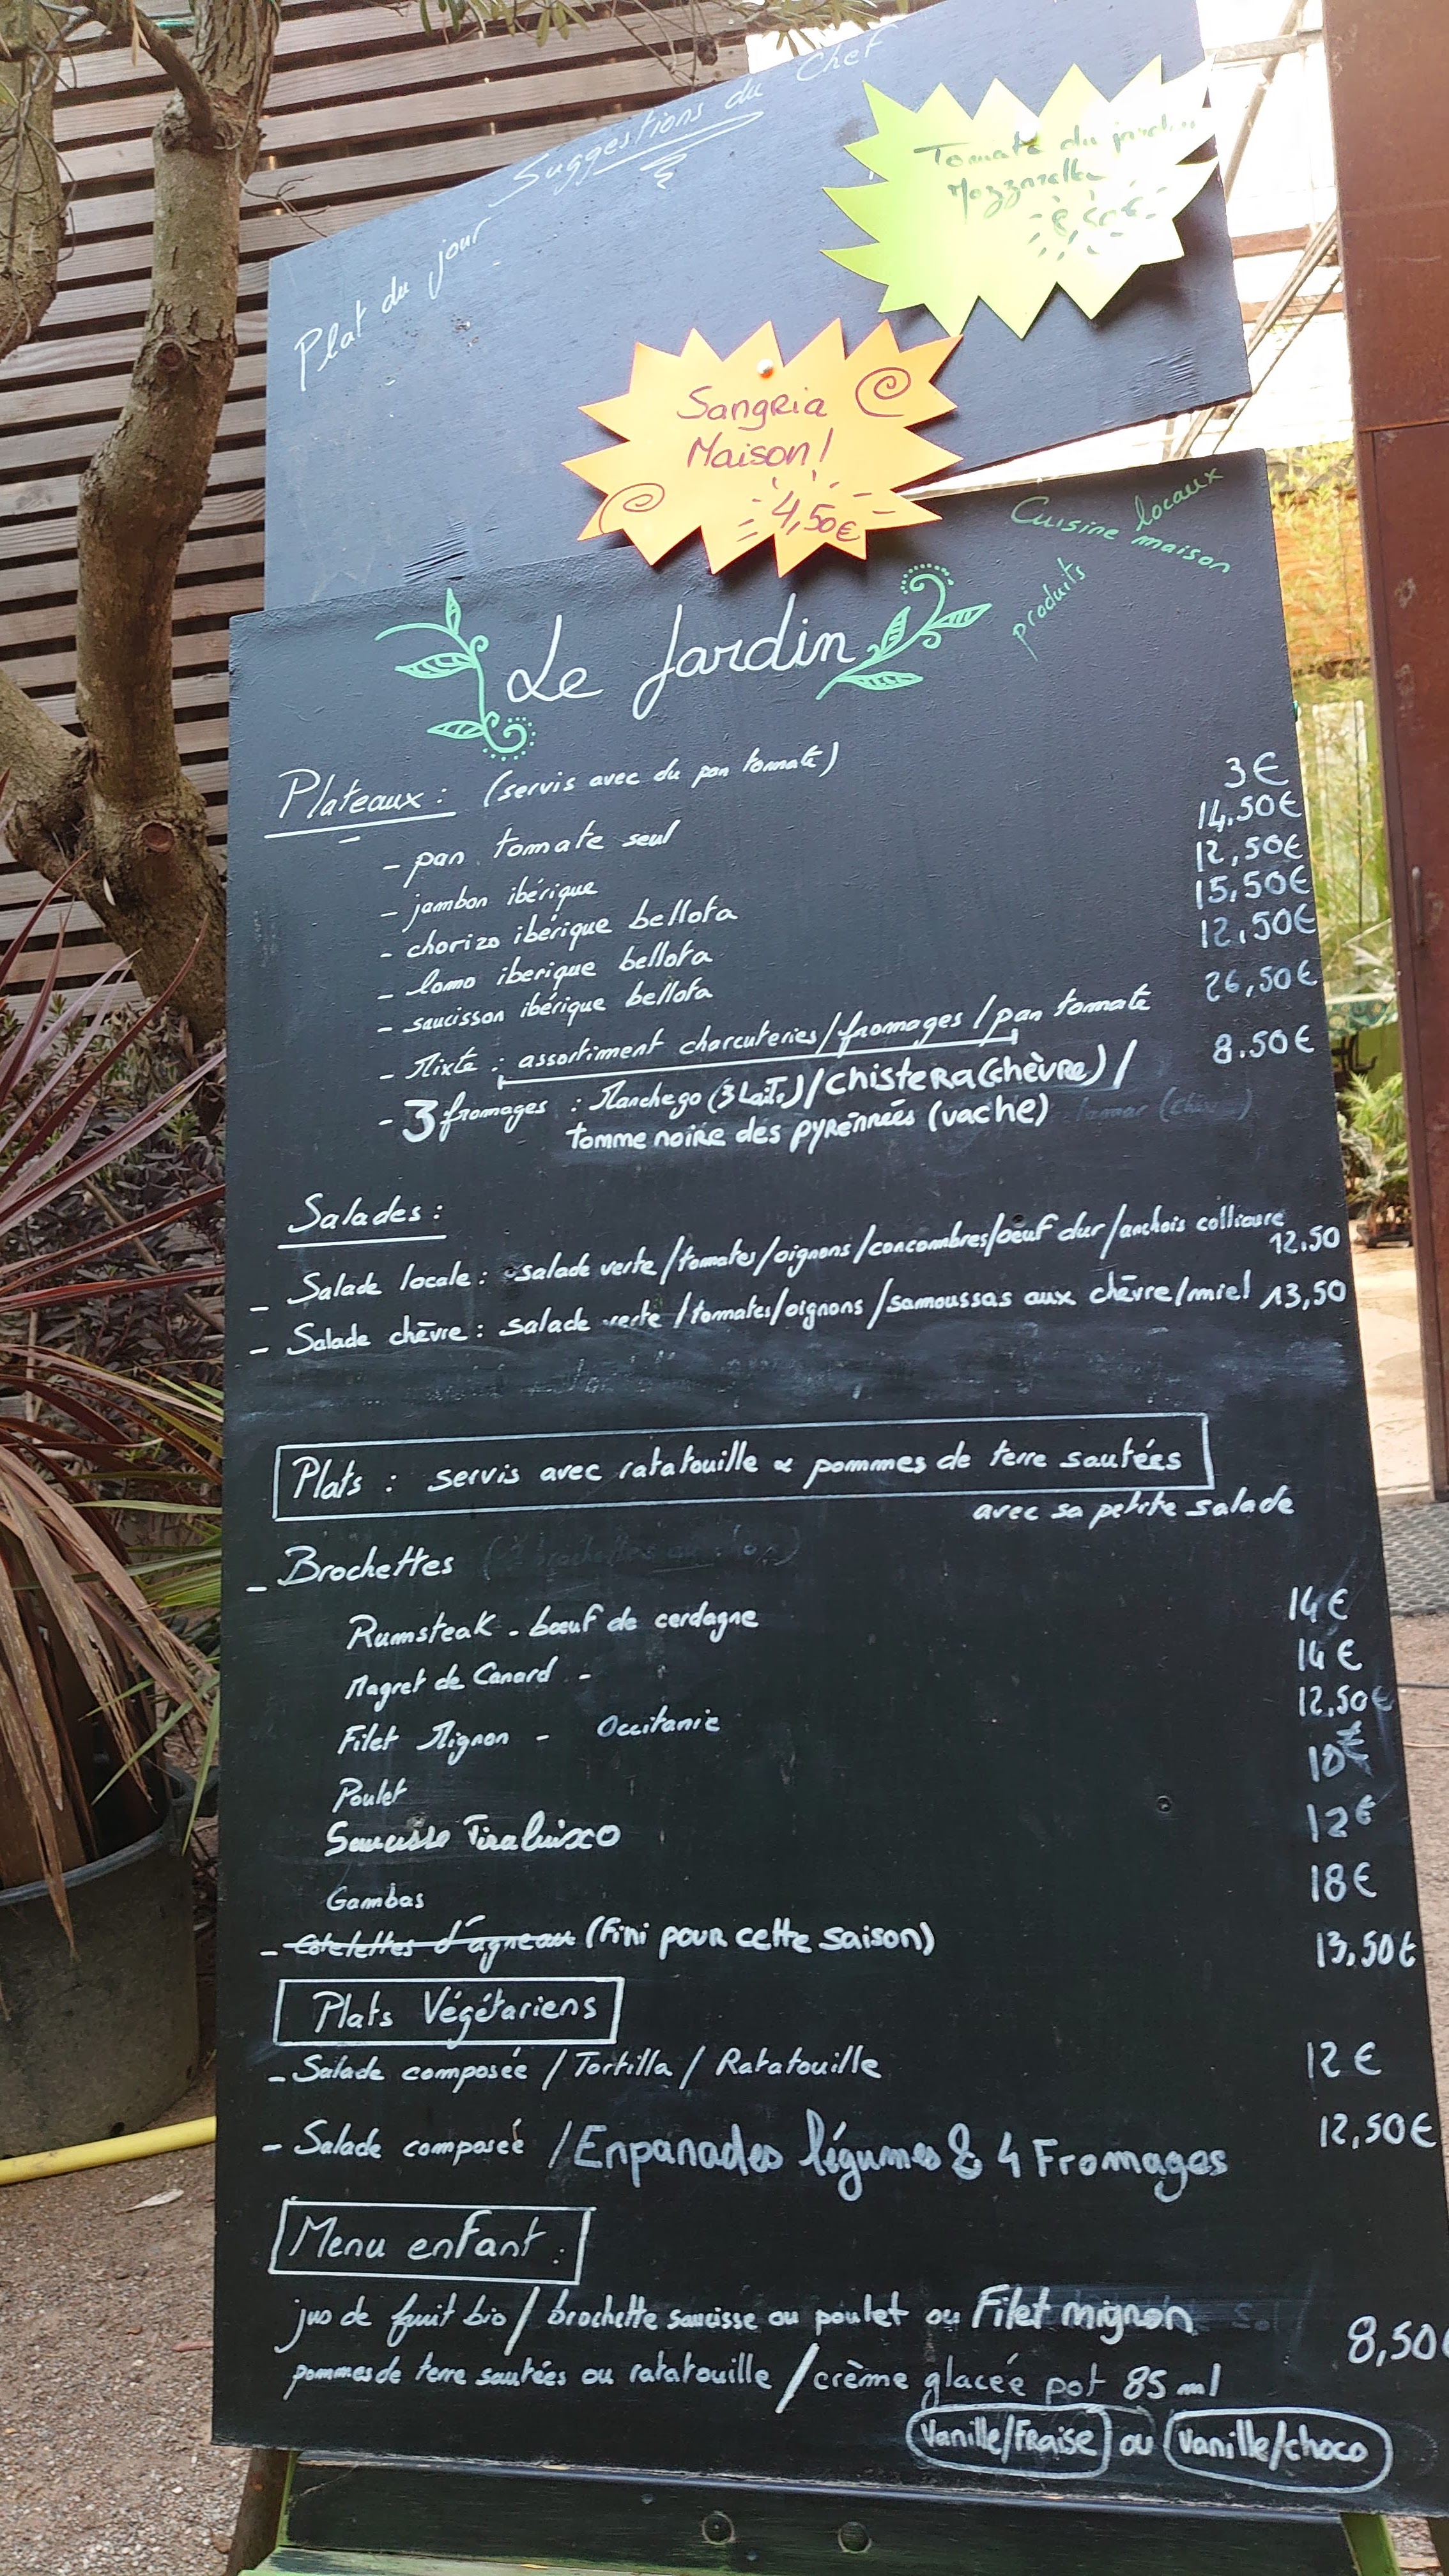 Suggestions du Chef
Plat du jour
Tomate du jardin
Mozzarella
Sangria
Maison !
4,50€
Cuisine locaux
maison
produits
Le Jardin
Plateaux : (servis avec du pan tomate)
- pan tomate seul 3€
- jambon ibérique 14,50€
- chorizo ibérique bellota 12,50€
- lomo iberique bellota 15,50€
- saucisson ibérique bellota 12,50€
- Mixte : assortiment charcuteries/fromages/pan tomate 26,50€
- 3 fromages : Manchego (3 Laits)/Chistera(chèvre)/ 8.50€
tomme noire des pyrénnées (vache)
Salades :
- Salade locale : salade verte/tomates/oignons/concombres/oeuf dur/anchois collioure
12.50
- Salade chèvre : salade verte/tomates/oignons/samoussas aux chèvre/miel 13,50
Plats : servis avec ratatouille & pommes de terre sautées
avec sa petite salade
- Brochettes
Rumsteak - bœuf de cerdagne 14€
Magret de Canard - 14€
Filet Mignon - Occitanie 12,50€
Poulet 10€
Saucisse Tirabuixo 12€
Gambas 18€
- Cotelettes d'agneau (Fini pour cette saison) 13,50€
Plats Végétariens
- Salade composée / Tortilla / Ratatouille 12€
- Salade composée / Enpanadas légumes & 4 Fromages 12,50€
Menu enfant :
jus de fruit bio / brochette saucisse ou poulet ou Filet mignon
8,50€
pommes de terre sautées ou ratatouille / crème glacée pot 85 ml
Vanille/Fraise ou Vanille/choco